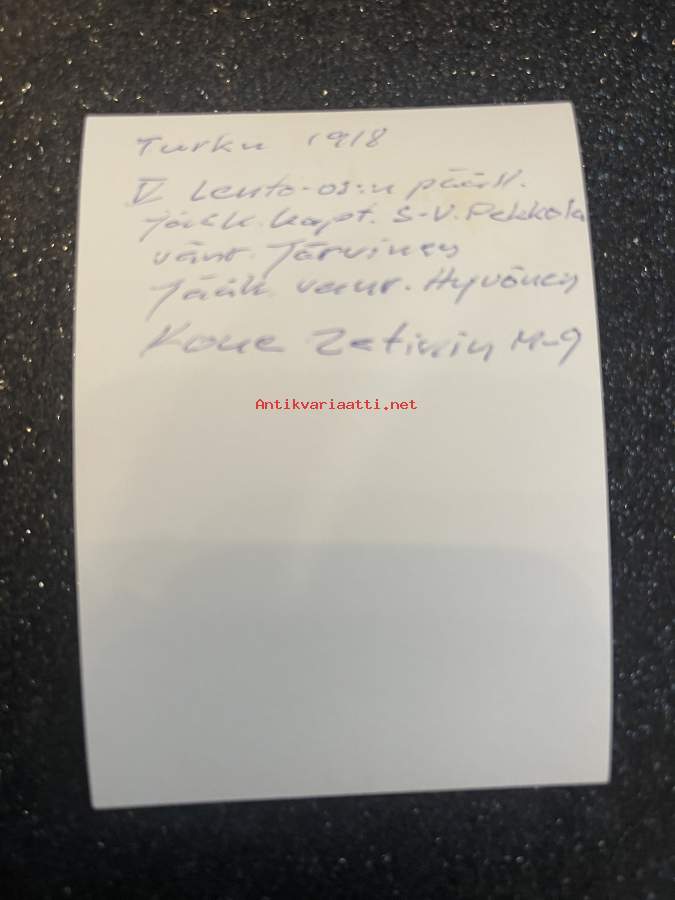 Turku 1918
V Lento-os:n pääll.
jääk. kapt. S-V. Pekkola
vänr. Järvinen
Jääk. vänr. Hyvönen
Kone Zetinin M-9
Antikvariaatti.net